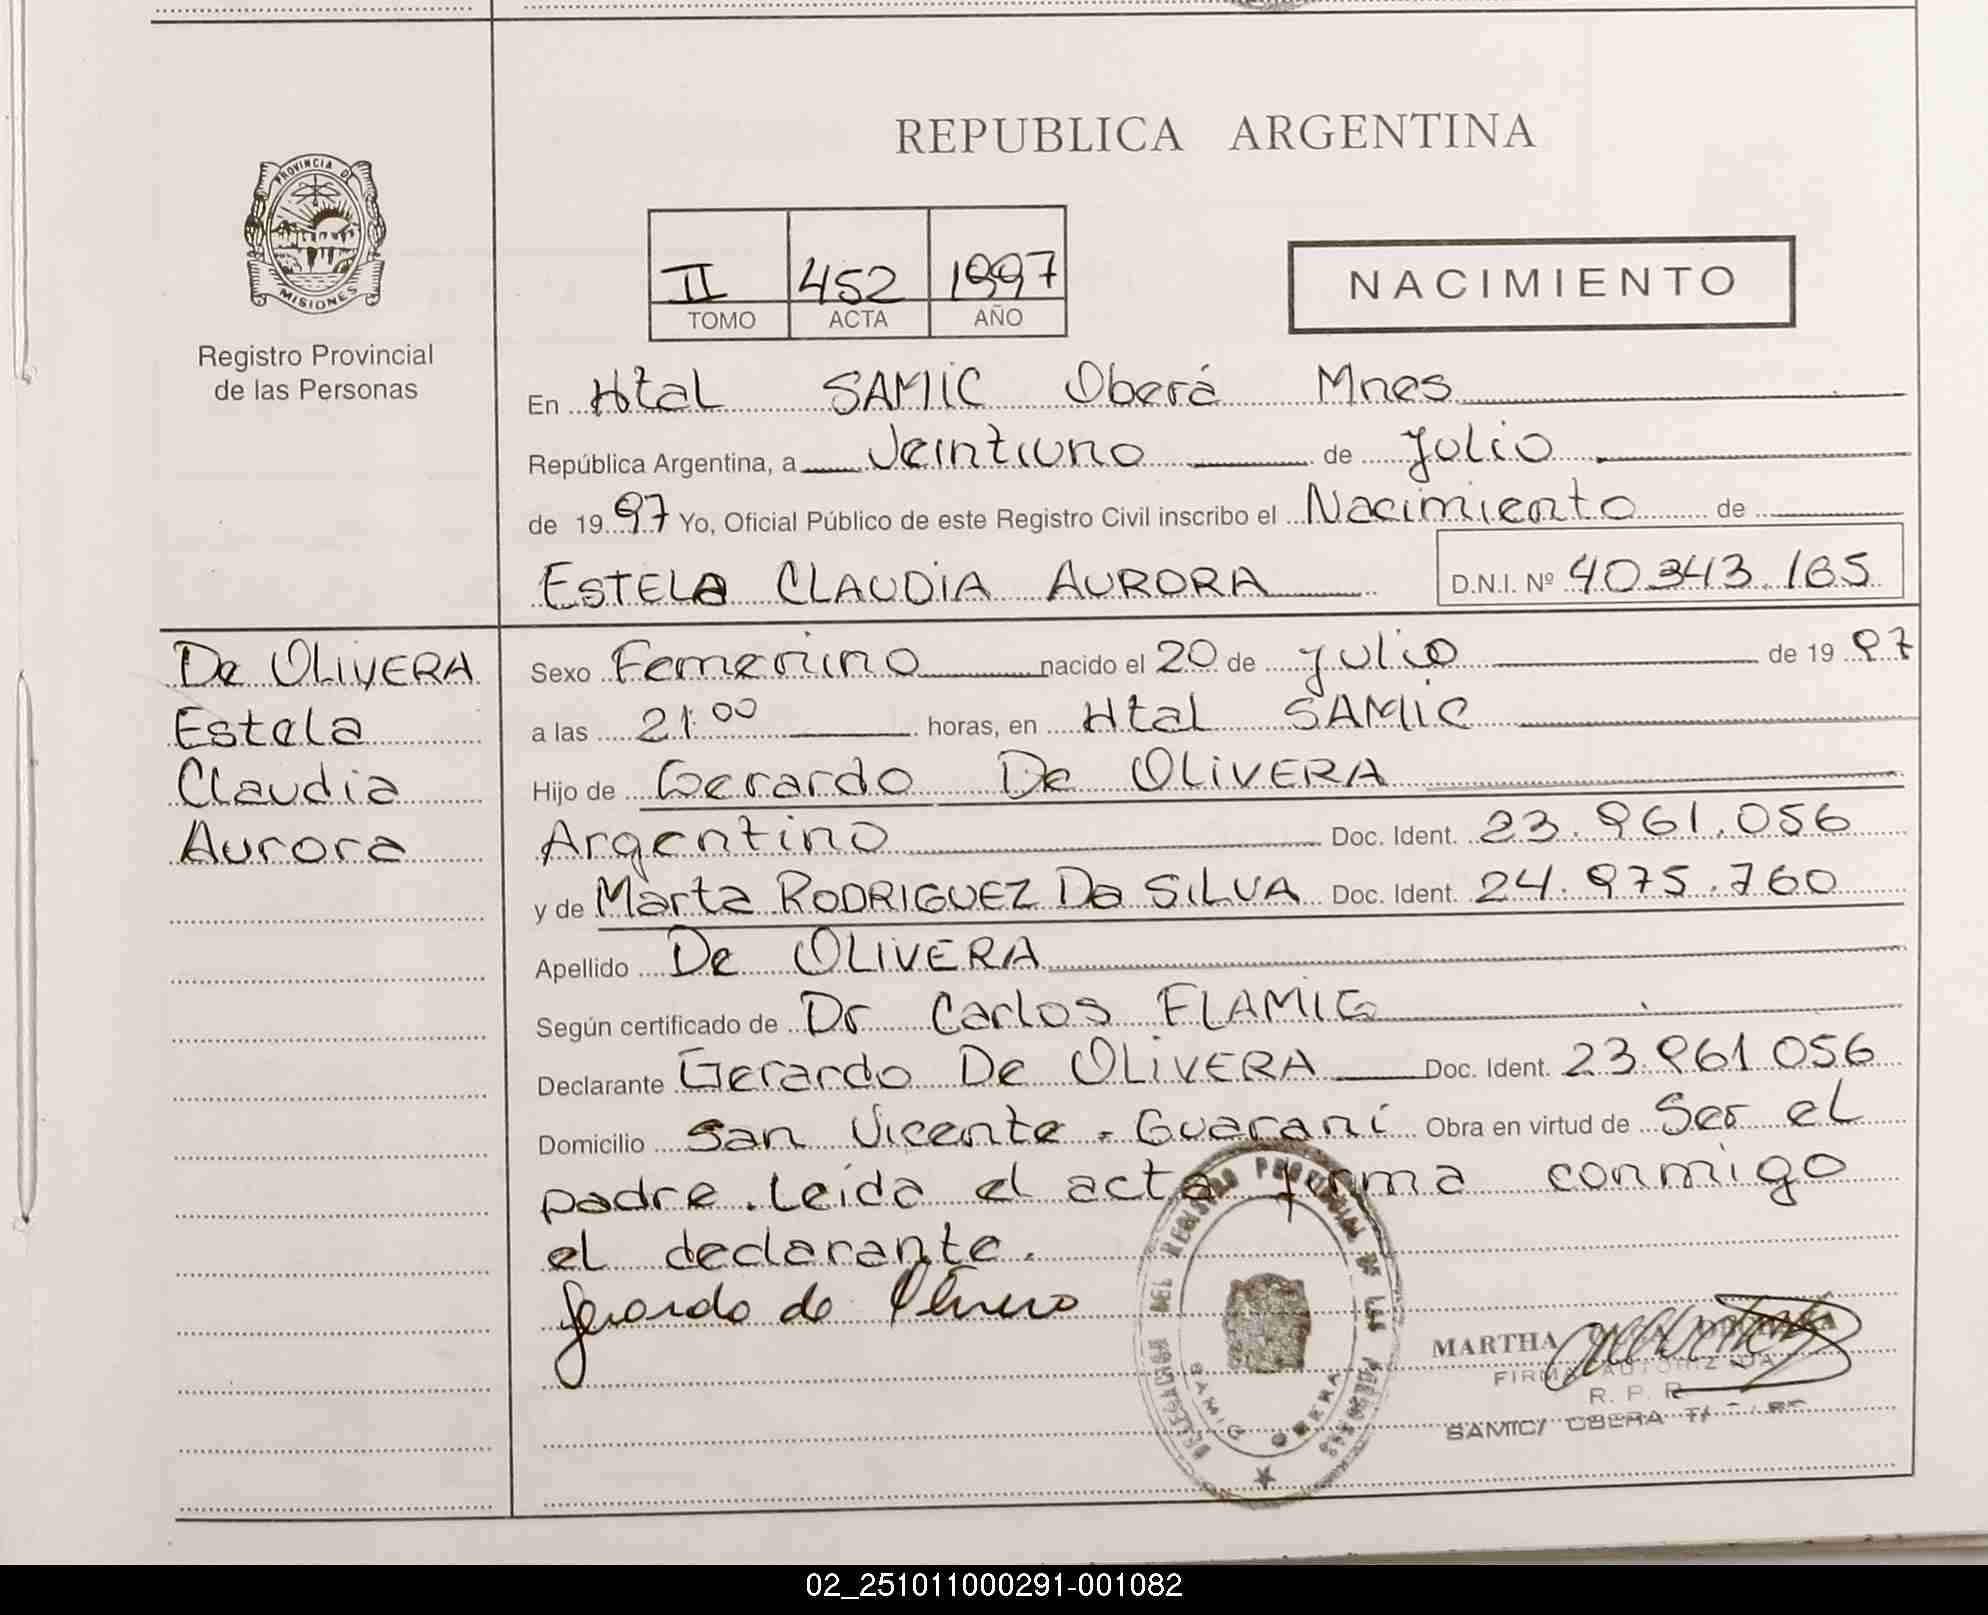 REPUBLICA ARGENTINA
PROVINCIA DE
MISIONES
Registro Provincial
de las Personas
II 452 1997
TOMO ACTA AÑO
NACIMIENTO
En Htal SAMIC Oberá Mnes
República Argentina, a Veintiuno de Julio
de 1997 Yo, Oficial Público de este Registro Civil inscribo el Nacimiento de
ESTELA CLAUDIA AURORA D.N.I. Nº 40.343.185
De OLIVERA
Estela
Claudia
Aurora
Sexo Femenino nacido el 20 de Julio de 1997
a las 21:00 horas, en Htal SAMIC
Hijo de Gerardo De OLIVERA
Argentino Doc. Ident. 23.961.056
y de Marta RODRIGUEZ Da SILVA Doc. Ident. 24.975.760
Apellido De OLIVERA
Según certificado de Dr Carlos FLAMIG
Declarante Gerardo De OLIVERA Doc. Ident. 23.961.056
Domicilio San Vicente - Guaraní Obra en virtud de Ser el
padre. Leida el acta firma conmigo
el declarante.
Gerardo de Olivera
DELEGACION DEL REGISTRO PROVINCIAL DE LAS PERSONAS
SAMIC OBERA
MARTHA
FIRMA AUTORIZADA
R. P. P.
SAMIC/ OBERA
02_251011000291-001082